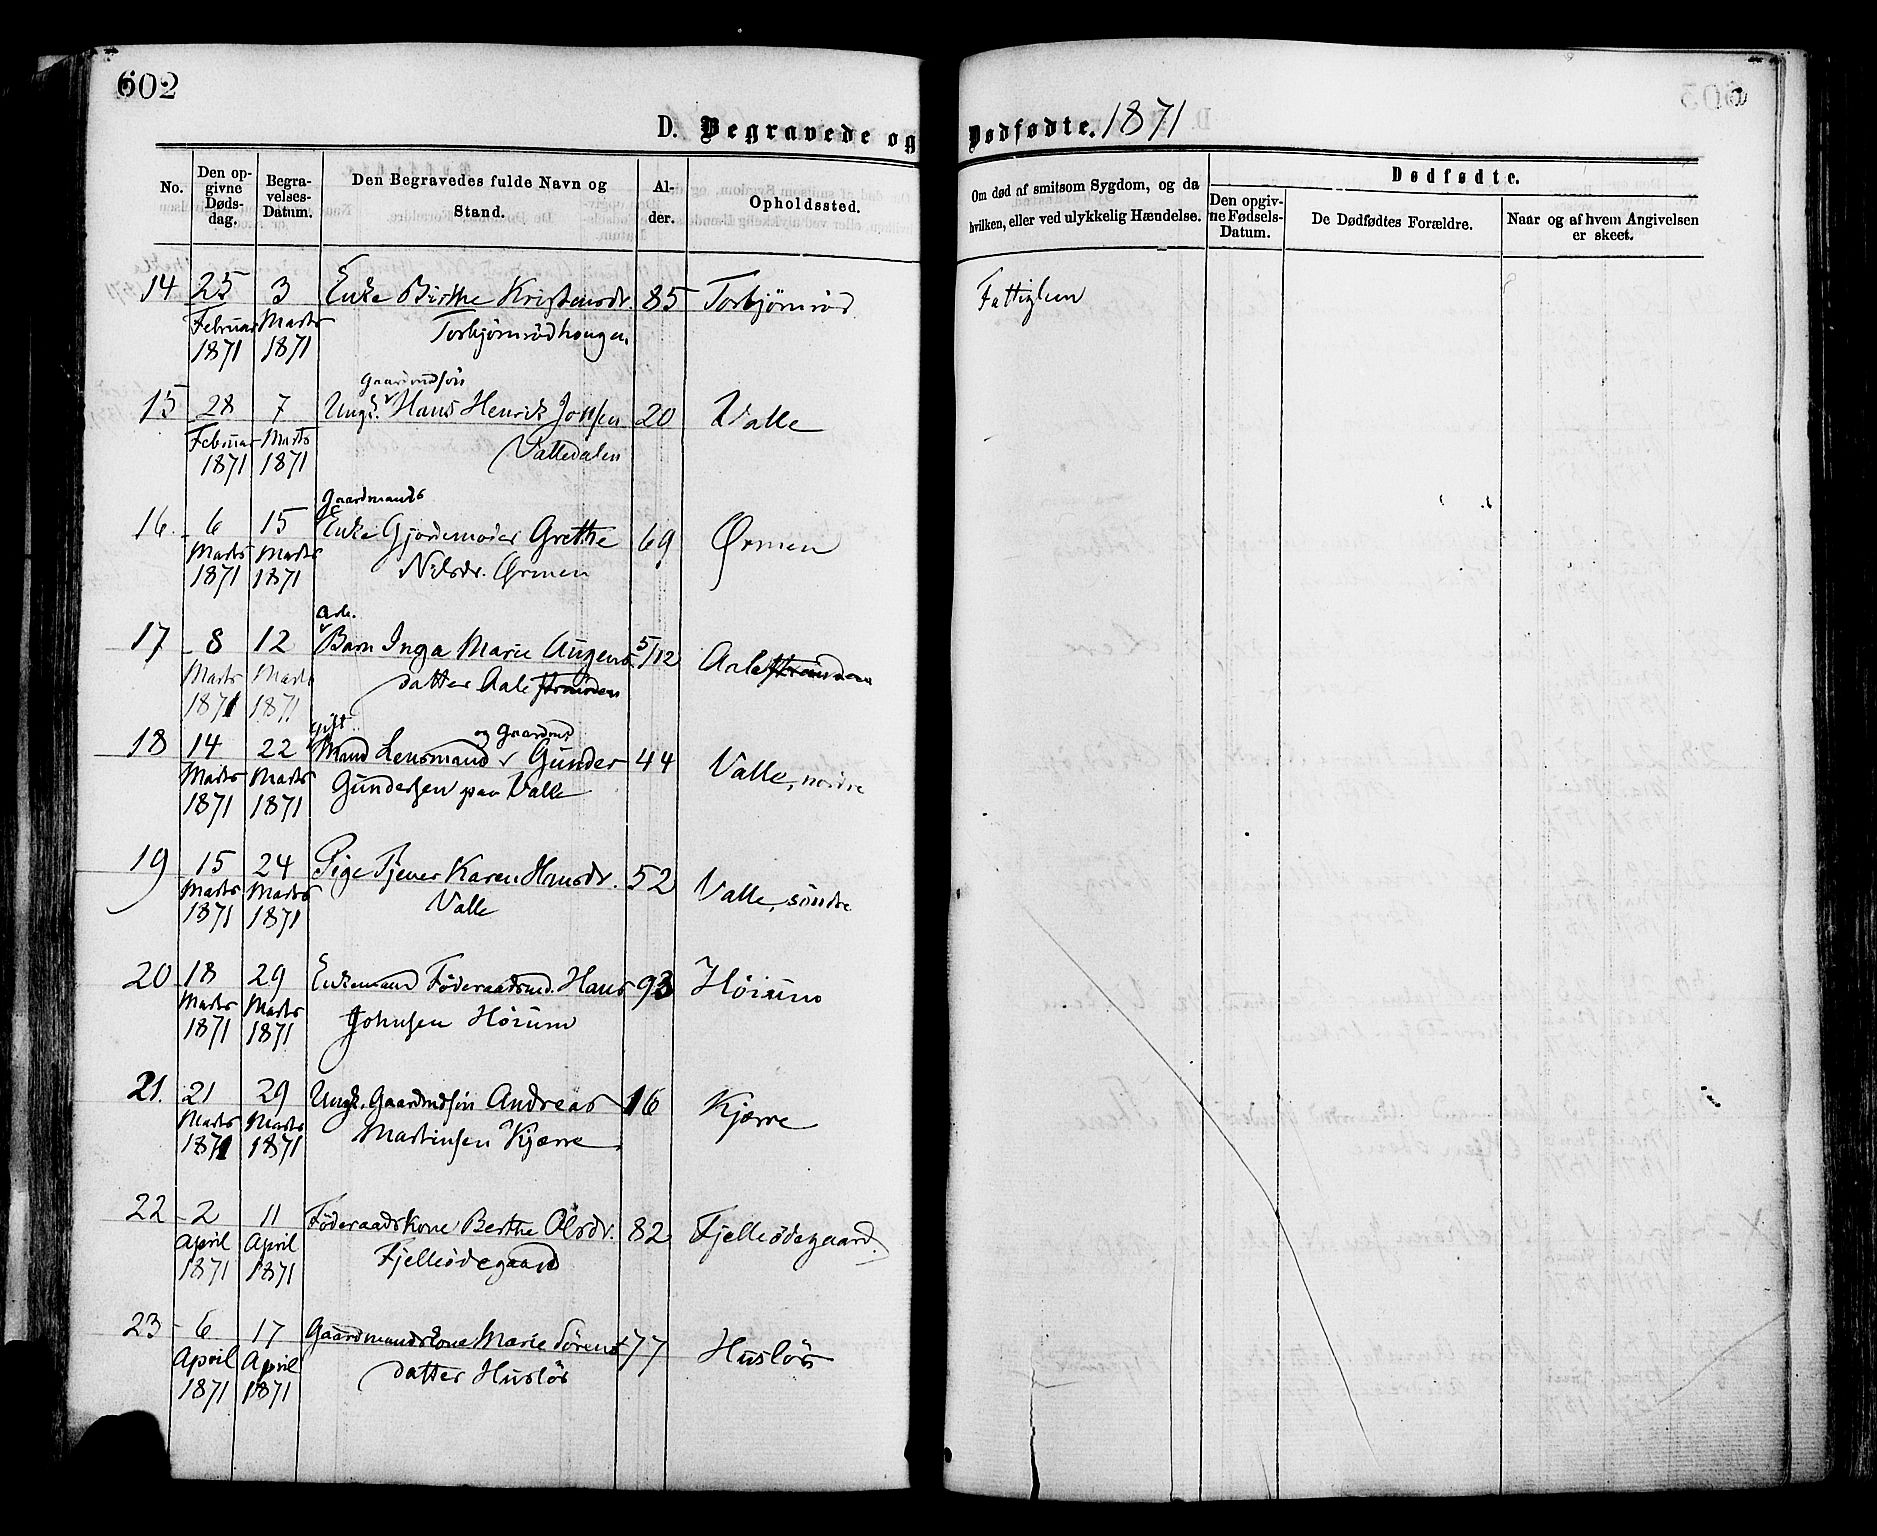 602
D. Begravede og Dødfødte. 1871
No. | Den opgivne Dødsdag. | Begravelses-Datum. | Den Begravedes fulde Navn og Stand. | Alder. | Opholdssted. | Om død af smitsom Sygdom, og da hvilken, eller ved ulykkelig Hændelse. | Dødfødte. | Den opgivne Fødsels-Datum. | De Dødfødtes Forældre. | Naar og af hvem Angivelsen er skeet.
14 25 3 Enke Birthe Kristensdr. 85 Torbjörnröd Fattiglem
Februar Marts Torbjörnrödhougen
1871 1871
Gaardmdsön
15 28 7 Ungk. Hans Henrik 20 Valle
Februar Marts Valledalen
1871 1871
Gaardmands
16. 6 15 Enke Gjordemoder Grethe 69 Ørmen
Marts Marts Nilsdr. Ørmen
1871 1871
17 8 12 Barn Inga Marie 5/12 Aale stranden
Marts Marts datter Aale stranden
1871 1871
gift og Gaardmd.
18 14 22 Mand Lensmand Gunder 44 Valle, nordre
Marts Marts Gundersen paa Valle
1871 1871
19 15 24 Pige Tjener Karen Hansdr. 52 Valle, söndre
Marts Marts Valle
1871 1871
20 18 29 Enkemand Föderaadsmd. Hans 93 Hörum
Marts Marts Johnsen Hörum
1871 1871
21. 21 29 Ungk. Gaardmdsön Andreas 16 Kjærre
Marts Marts Martinsen Kjærre
1871 1871
22 2 11 Föderaadskone Berthe Olsdr. 82 Fjelleödegaard.
April April Fjelleödegaard
1871 1871
23 6 17 Gaardmandskone Marie Sörens 77 Huslös
April April datter Huslös
1871 1871